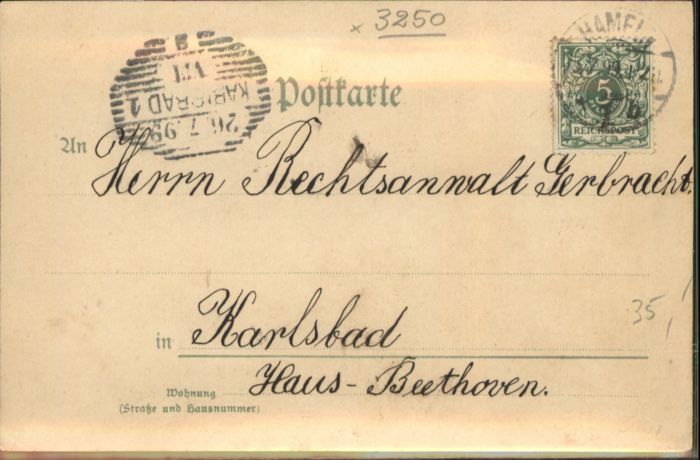 x 3250
HAMEL
5
REICHSPOST
KARLSBAD 1
26.7.99
Postkarte
An Herrn Rechtsanwalt Gerbracht.
35,
in Karlsbad
Haus-Beethoven.
Wohnung
(Straße und Hausnummer)